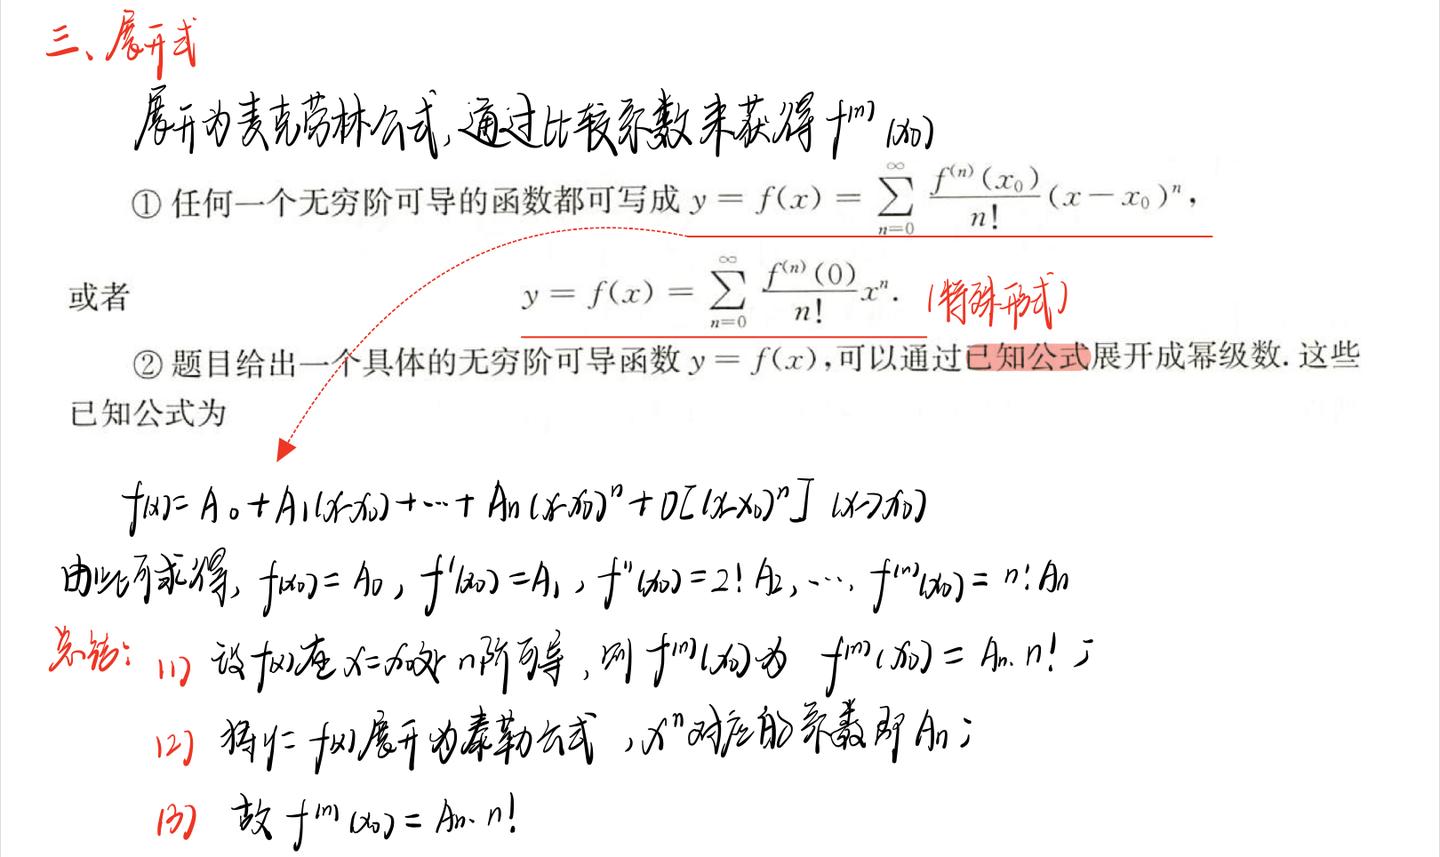 三、展开式
展开为麦克劳林公式,通过比较系数来获得 f⁽ⁿ⁾(x₀)
① 任何一个无穷阶可导的函数都可写成 y = f(x) = ∑_{n=0}^{∞} \frac{f⁽ⁿ⁾(x₀)}{n!}(x − x₀)ⁿ,
或者 y = f(x) = ∑_{n=0}^{∞} \frac{f⁽ⁿ⁾(0)}{n!}xⁿ. (特殊形式)
② 题目给出一个具体的无穷阶可导函数 y = f(x),可以通过已知公式展开成幂级数. 这些
已知公式为
f(x) = A₀ + A₁(x-x₀) + ⋯ + Aₙ(x-x₀)ⁿ + o[(x-x₀)ⁿ] (x→x₀)
由此可求得, f(x₀) = A₀, f'(x₀) = A₁, f''(x₀) = 2! A₂, ⋯, f⁽ⁿ⁾(x₀) = n! Aₙ
总结: (1) 设 f(x) 在 x=x₀处 n阶可导, 则 f⁽ⁿ⁾(x₀)为 f⁽ⁿ⁾(x₀) = Aₙ· n! ;
(2) 将y= f(x)展开为泰勒公式 ,xⁿ对应的系数即 Aₙ;
(3) 故 f⁽ⁿ⁾(x₀) = Aₙ· n!